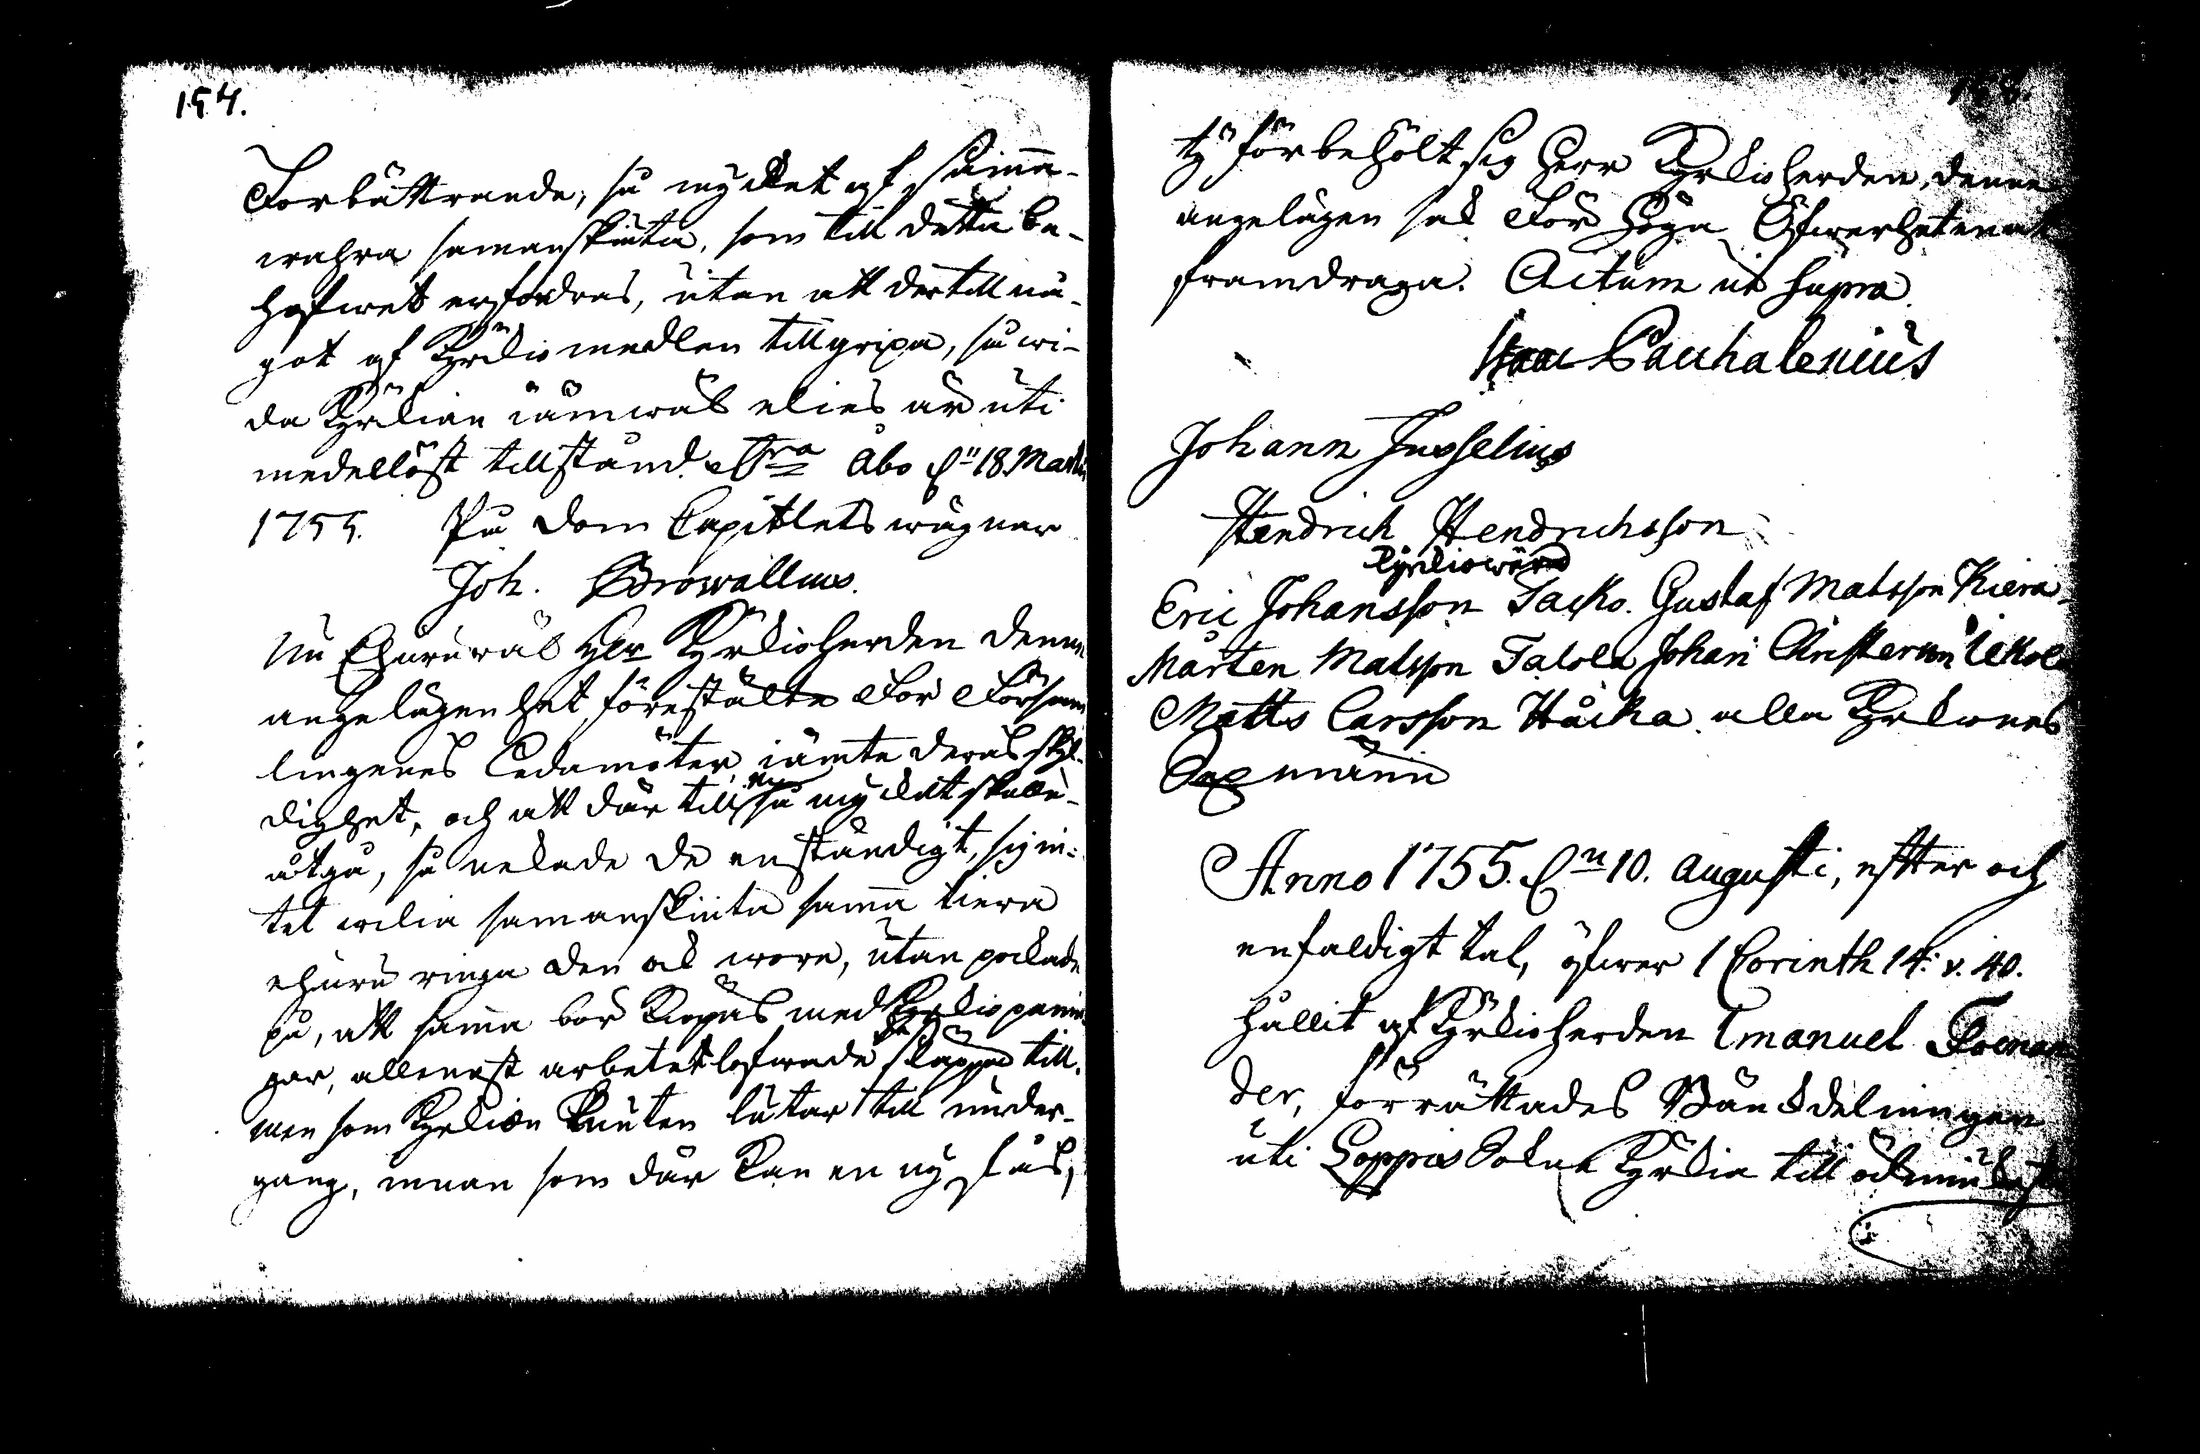 154.
Förbättrande, så mycket af samma-
wahra samanskiuta, som till detta be-
hofwet erfordras, utan att dertill nå-
got af Kyrkio medlen tillgripa, så wi-
da Kyrkian iämwäl elies är uti
medellöst tillstånd. Åbo dn 18 Martii
1755. På Dom Capitlets wägnar
Joh. Browallius.
Nu Ehuruwäl Herr Kyrkioherden denna
angelägenhet förestälte För Församb
lingenes Ledamöter iämte deras skyl-
dighet, och att där till så mycket skulle
åtgå, så nekade de enständigt, sig in-
tet wilia samanskiuta samma tiera
ehuru ringa den ock wore, utan påstode
på, att samma bör kiöpas med Kyrkio pennin
gar, allenast arbetet lofwade de släppa till.
men som Kyrkian knuten lutar till under-
gång, innan som där kan en ny fås,
ty förbehölt sig Herr Kyrkioherden, denne
angelägen sak För Höga Öfwerheten at
framdraga. Actum ut supra
Isaac Pacchalenius
Johann Jusselius
Hendrich Hendrichsson
Kyrkiowärd
Eric Johansson Jacko. Gustaf Matsson Kiera-
Mårten Matsson Talola Johan Christersson Ukola
Matts Larsson Håcka alla Kyrkiones
Sexmänn
Anno 1755. dn 10. Augusti, efter och
enfaldigt tal, öfwer 1 Corinth 14: v. 40.
hållit af Kyrkioherden Emanuel
der, förrättades Bänkdelningen
uti Loppis Sokne Kyrkia till ödmiukast